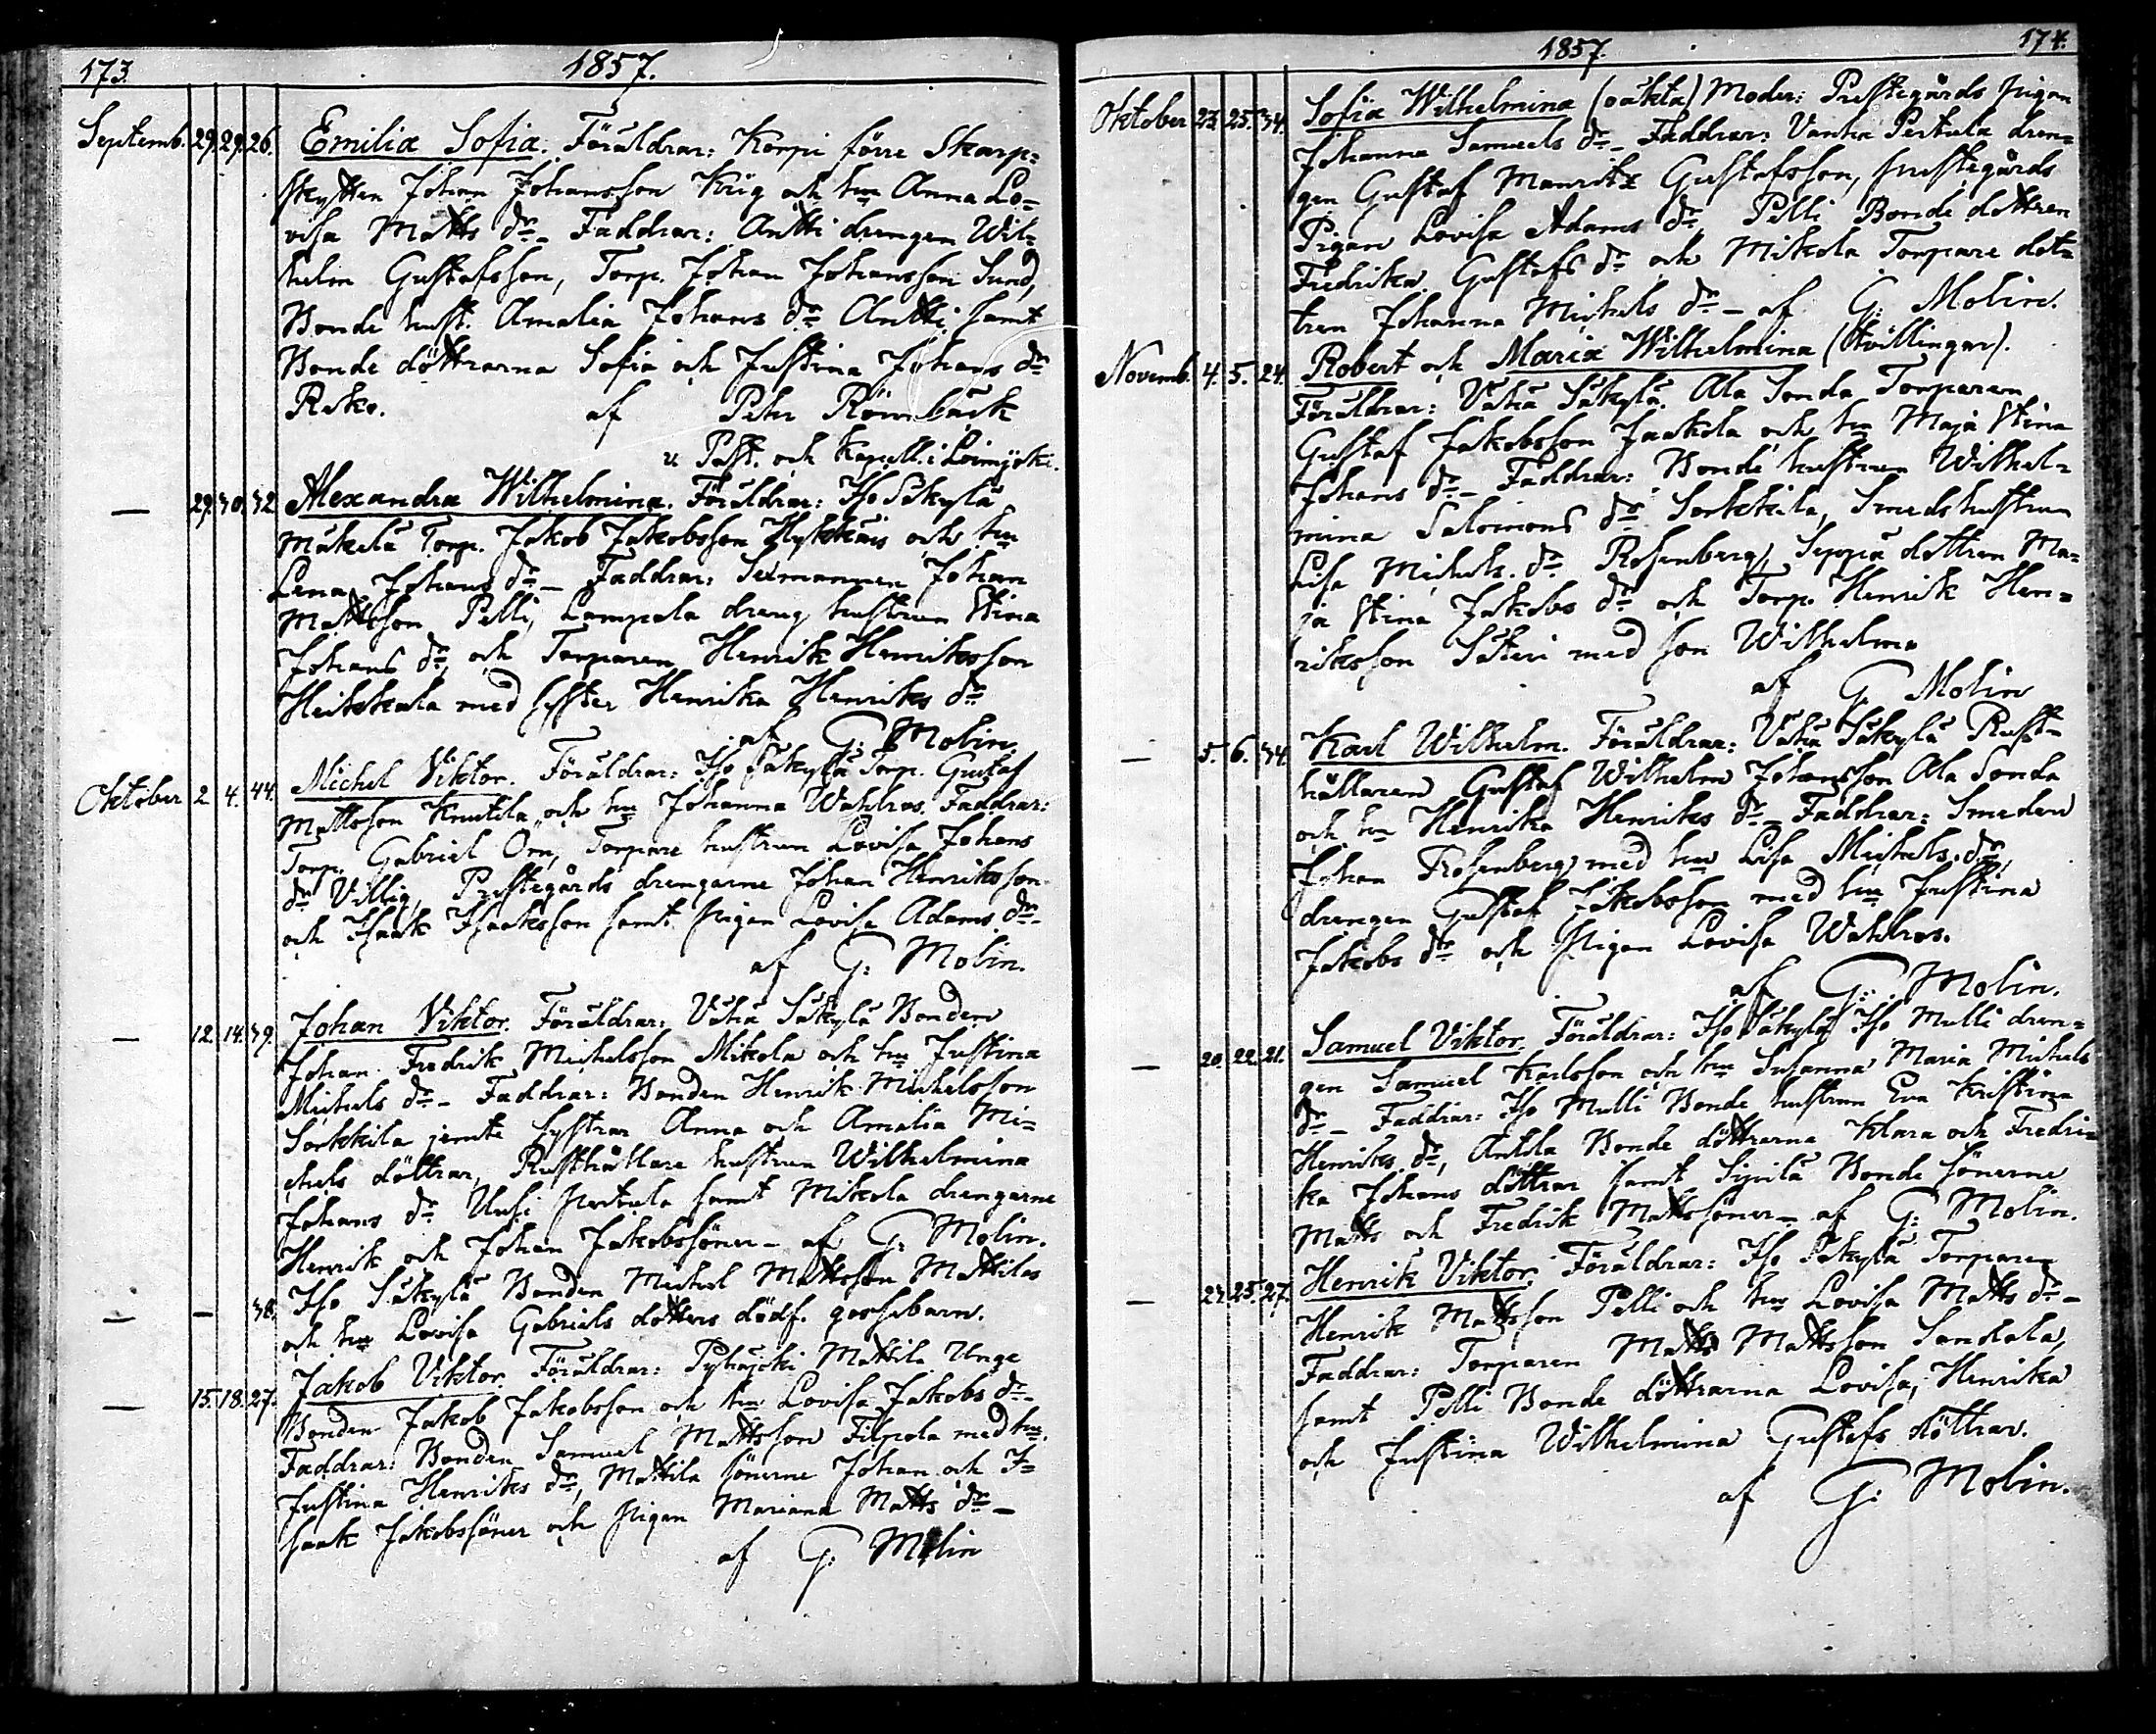 173. 1857.
Septemb. 29. 29. 26. Emilia Sofia. Föräldrar: Korpi förre Skarp=
skytten Johan Johansson Krig och hu Anna Lo=
visa Matts dr_ Faddrar: Antti drengen Wil=
helm Gustafsson, Torp. Johan Johansson Sund,
Bonde hust. Amalia Johans dr Antti, samt
Bonde döttrarna Sofia och Justina Johans dr
Reko. af Petter Römbäck
v. Past. och Kapell. i Loimijoki.
— 29. 30. 32. Alexandra Wilhelmina. Föräldrar: Iso Säkylä
Mäkelä Torp. Jakob Jakobsson Hykkäis och hu
Lena Johans dr_ Faddrar: Sexmannen Johan
Mattsson Pelli, Lampola dreng hustrun Stina
Johans dr, och Torparen Henrik Henriksson
Heikkala med syster Henrika Henriks dr
af G: Molin.
Oktober 2. 4. 44. Michel Viktor. Föräldrar: Iso Säkylä Torp. Gustaf
Mattsson Knutila och hu Johanna Wahlros. Faddrar:
Torp. Gabriel Örn, Torpare hustrun Lovisa Johans
dr Villig, Prestegårds drengarne Johan Henriksson
och Isaak Isaaksson samt Pigan Lovisa Adams dr_
af G: Molin.
— 12. 14. 39. Johan Viktor. Föräldrar: Vähä Säkylä Bonden
Johan Fredrik Michelsson Mikola och hu Justina
Michels dr_ Faddrar: Bonden Henrik Michelsson
Sorkkila jemte systrar Anna och Amalia Mi=
chels döttrar, Rusthållare hustrun Wilhelmina
Johans dr Uusi Pertula samt Mikola drengarne
Henrik och Johan Jakobssöner_ af G: Molin.
— — 38. Iso Säkylä Bonden Michel Mattsson Mattilas
och hu Lovisa Gabriels dotters dödf. gossebarn.
— 15. 18. 27. Jakob Viktor. Föräldrar: Pyhäjoki Mattila Unge
Bonden Jakob Jakobsson och hu Lovisa Jakobs dr_
Faddrar: Bonden Samuel Mattsson Filpola med hu.
Justina Henriks dr, Mattila sönerne Johan och I=
saak Jakobssöner och Pigan Mariana Matts dr_
af G: Molin
1857. 174.
Oktober 23. 25. 34. Sofia Wilhelmina (oäkta) Moder: Prestegårds pigan
Johanna Samuels dr_ Faddrar: Vanha Pertula dren=
gen Gustaf Mauritz Gustafsson, prestegårds
Pigan Lovisa Adams dr, Pelli Bonde dottren
Fredrika Gustafs dr och Mikola Torpare dot=
tren Johanna Michels dr_ af G: Molin.
Novemb. 4. 5. 24. Robert och Maria Wilhelmina (tvillingar).
Föräldrar: Vähä Säkylä Ala Sonda Torparen
Gustaf Jakobsson Jaakola och hu Maja Stina
Johans dr_ Faddrar: Bonde hustrun Wilhel=
mina Salomons dr Sorkkila, Smedshustrun
Lisa Michels. dr Rosenberg, Seppä dottren Ma=
ja Stina Jakobs dr och Torp. Henrik Hen=
riksson Säteri med son Wilhelm
af G. Molin
— 5. 6. 34. Karl Wilhelm. Föräldrar: Vähä Säkylä Rust=
hållaren Gustaf Wilhelm Johansson Ala Sonda
och hu Henrika Henriks dr_ Faddrar: Smeden
Johan Rosenberg med hu Lisa Michels. dr,
drengen Gustaf Jakobsson med hu Justina
Jakobs dr och Pigan Lovisa Wahlros.
af G: Molin.
— 20. 22. 21. Samuel Viktor. Föräldrar: Iso Säkylä Iso Mulli dren=
gen Samuel Karlsson och hu Susanna Maria Michels
dr_ Faddrar: Iso Mulli Bonde hustrun Eva Kristina
Henriks dr, Anttila Bonde döttrarna Klara och Fredri=
ka Johans döttrar samt Sipilä Bonde sönerne
Matts och Fredrik Mattssöner_ af G: Molin.
— 24. 25. 27. Henrik Viktor. Föräldrar: Iso Säkylä Torparen
Henrik Mattsson Pelli och hu Lovisa Matts dr_
Faddrar: Torparen Matts Mattsson Sandala,
samt Pelli Bonde döttrarna Lovisa, Henrika
och Justina Wilhelmina Gustafs döttrar.
af G: Molin.